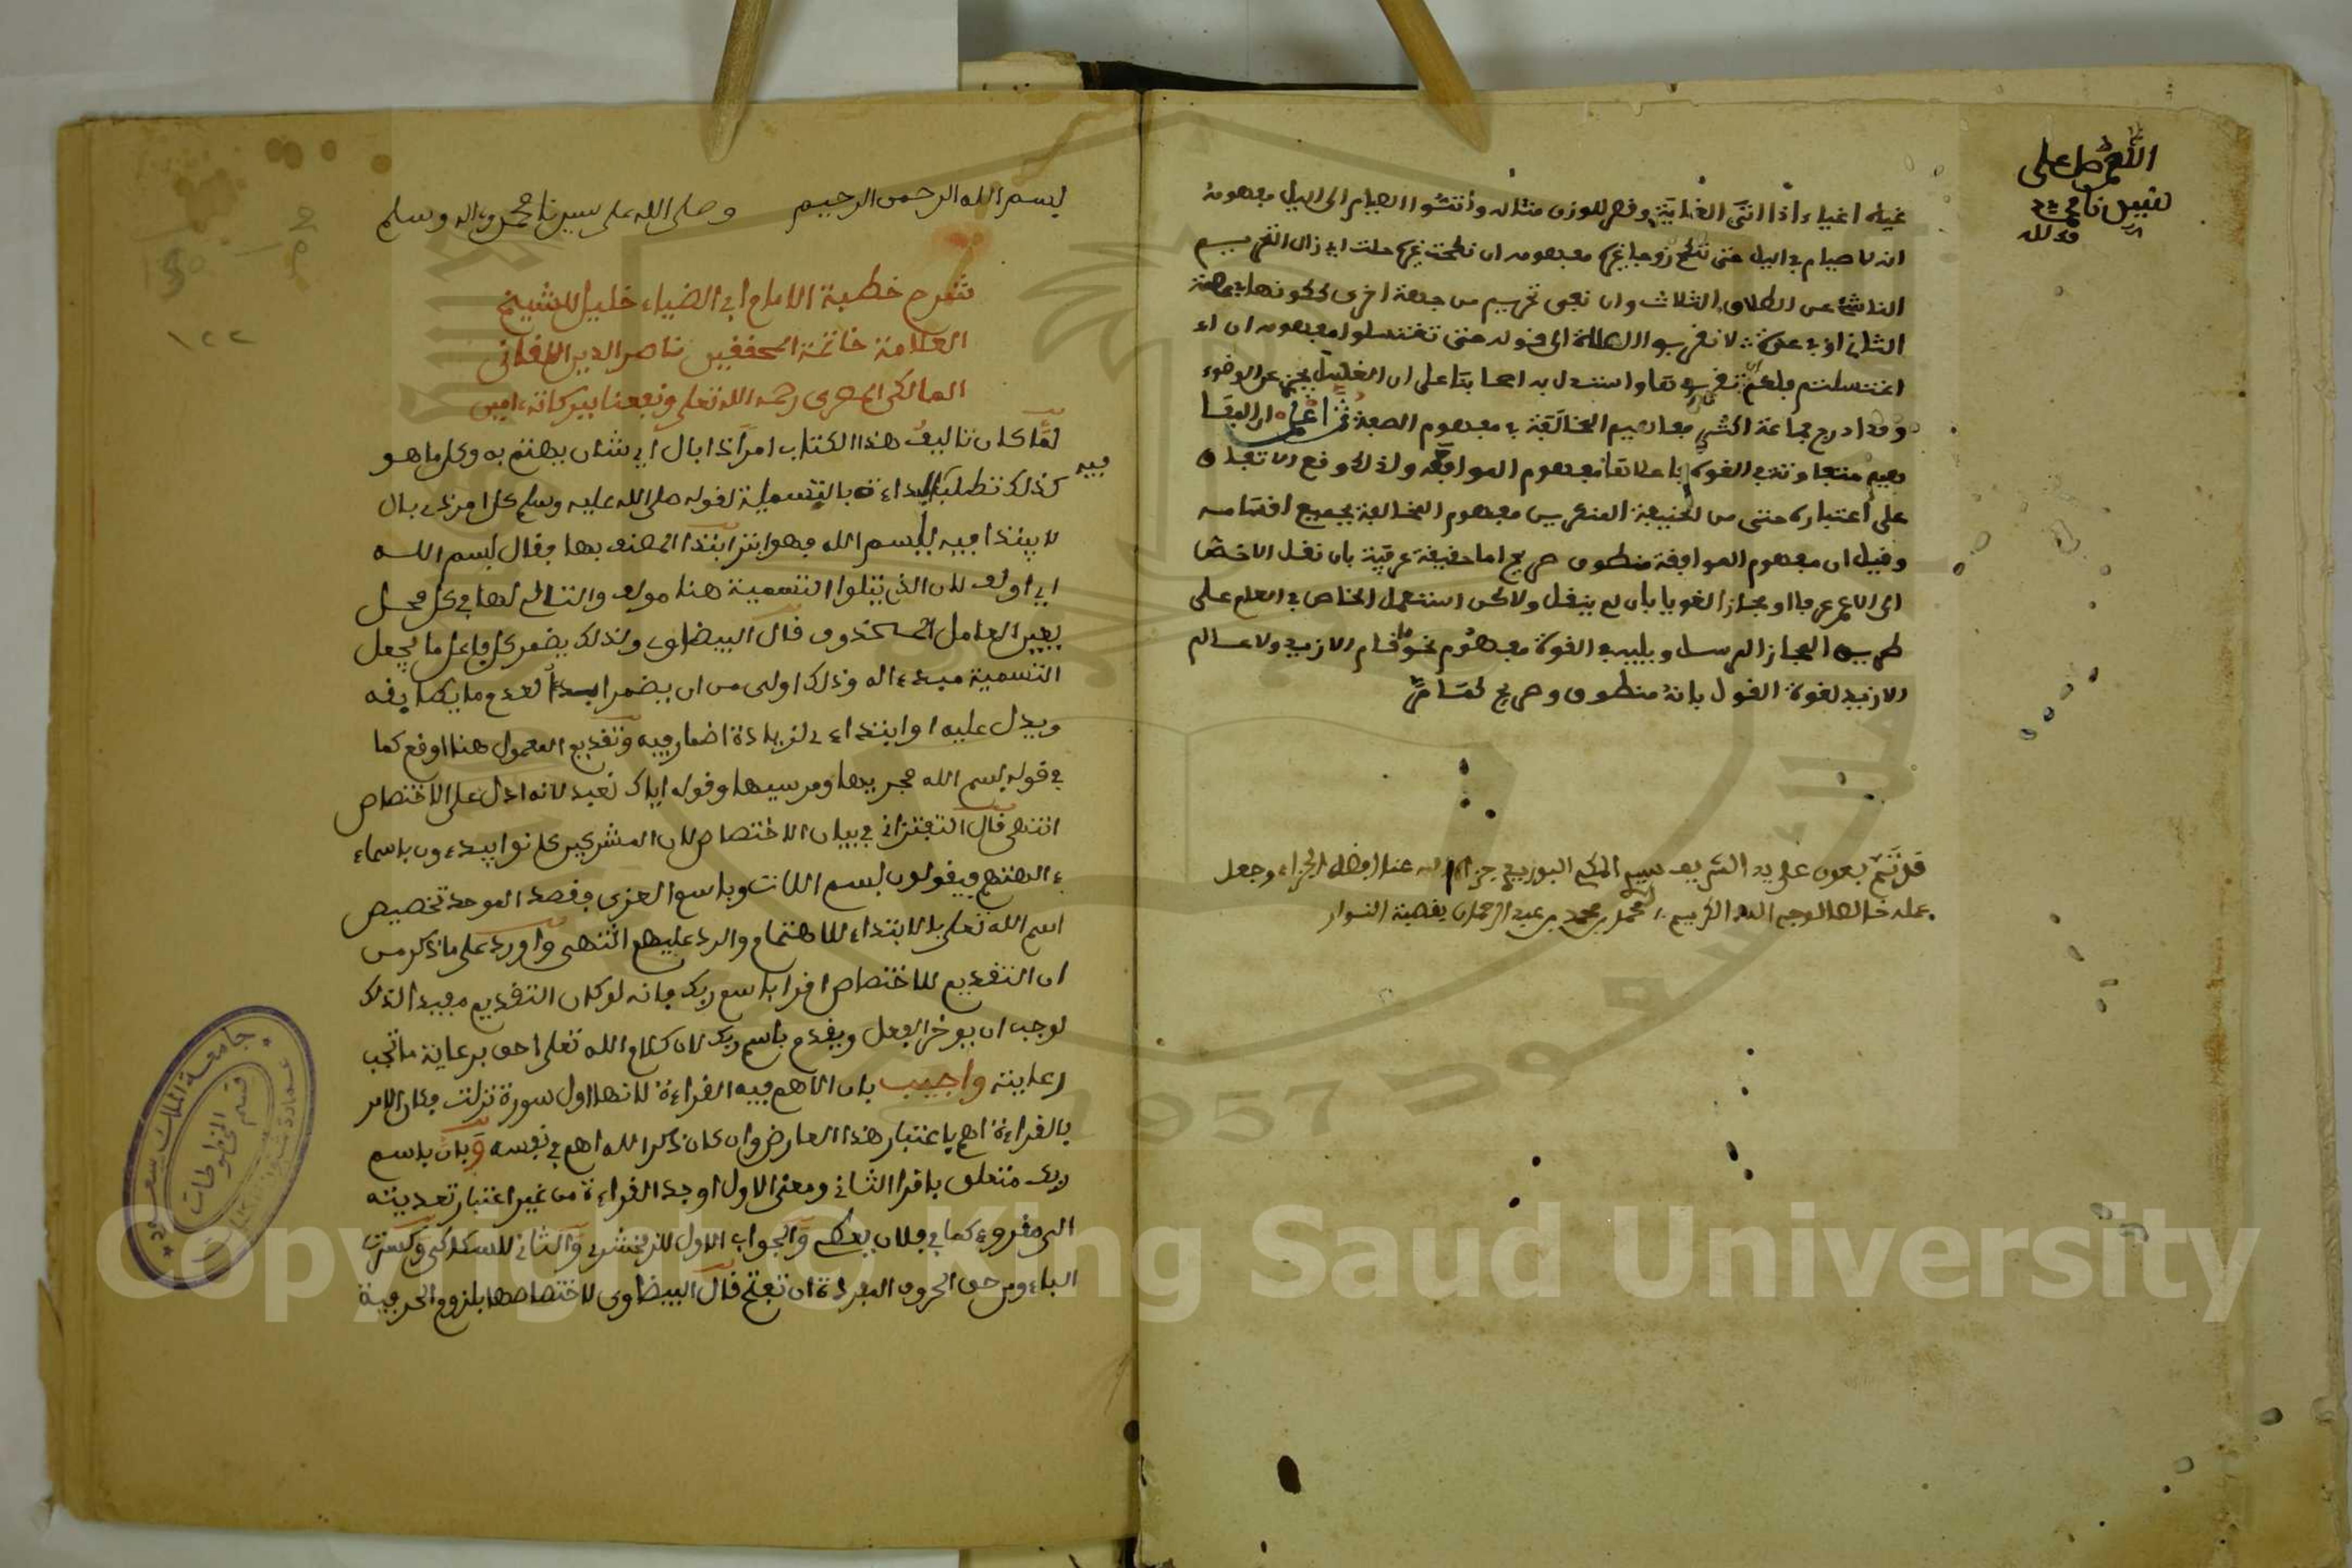 اللهم صل على
محمد
غياه اغياء اذا انتى الغاية وقصر للوزن مثاله واتموا الصيام الى اليل مفهومه
انه لا صيام في اليل حتى تنكح زوجا غيره مفهومه ان نكحت غيره حلت اي زال التحريم
الناشئ عن الطلاق الثلاث وان بقي تحريم من جهة اخرى ككونها في عصمة
الثاني او في عدته لا تقربوا الصلاة الى قوله حتى تغتسلوا مفهومه ان
اغتسلتم فلكم ان واستدل به اصحابنا على ان الغسل يجزي عن الوضوء
وقد ادرج جماعة اكثر مفاهيم المخالفة في مفهوم الصفة
على اعتباره حتى من الحنيفة المنكرين مفهوم المخالفة بجميع اقسامه
وقيل ان مفهوم الموافقة منطوق صريح اما حقيقة عرفية بان نقل الاخص
الى الاعم عرفا او مجازا لغويا بان لم ينقل ولاكن استعمل الخاص في العام على
طريق المجاز المرسل ويليه في القوة مفهوم نحو ما قام الا زيد ولا عالم
الا زيد لقوة القول بانه منطوق وصريح
قد تم بعون على يد الشريف سيدي المكي جزاه الله عنا افضل الجزاء وجعل
عمله خالصا لوجه الله الكريم محمد بن محمد بن عبد الرحمان
بسم الله الرحمن الرحيم وصلى الله على سيدنا محمد واله وسلم
شرح خطبة الامام ابي الضياء خليل للشيخ
العلامة خاتمة المحققين ناصر الدين اللقاني
المالكي المصري رحمه الله تعلى ونفعنا ببركاته امين
لما كان تاليف هذا الكتاب امرا ذا بال اي شان يهتم به وكل ما هو
فيه
كذلك تطلب البداءة بالتسمية لقوله صلى الله عليه وسلم كل امر ذي بال
لا يبتدا فيه ببسم الله فهو ابتر ابتدا المصنف بها فقال بسم الله
اي اولف لان الذي يتلوا التسمية هنا مولف والتالي لها في كل محل
يعين العامل المحذوف قال البيضاوي وكذلك يضمر كل فاعل ما يجعل
التسمية مبدءا له وذلك اولى من ان يضمر ابدا لعدم ما يطابقه
ويدل عليه او ابتداءي لزيادة اضمار فيه وتقديم المعمول هنا اوقع كما
في قوله بسم الله مجريها ومرسيها وقوله اياك نعبد لانه ادل على الاختصاص
انتهى قال التفتزاني في بيان الاختصاص لان المشركين كانوا يبدءون باسماء
ءالهتهم فيقولون بسم اللات وباسم العزى فقصد الموحد تخصيص
اسم الله تعلى بالابتداء للاهتمام والرد عليهم انتهى واورد على ما ذكر من
ان التقديم للاختصاص اقرا باسم ربك فانه لو كان التقديم مفيدا لذلك
لوجب ان يوخر الفعل ويقدم باسم ربك لان كلام الله تعلى احق برعاية ما تجب
رعايته واجيب بان الاهم فيه القراءة لانها اول سورة نزلت فكان الامر
بالقراءة اهم باعتبار هذا العارض وان كان ذكر الله اهم في نفسه وبان باسم
ربك متعلق باقرا الثاني ومعنى الاول اوجد القراءة من غير اعتبار تعديته
الى مقروء كما في فلان يعطي والجواب الاول للزمخشري والثاني للسكاكي وكسرت
الباء ومن حق الحروف المفردة ان تفتح قال البيضاوي لاختصاصها بلزوم الحرفية
١٢٢
جامعة الملك سعود
قسم المخطوطات
1957
Copyright © King Saud University